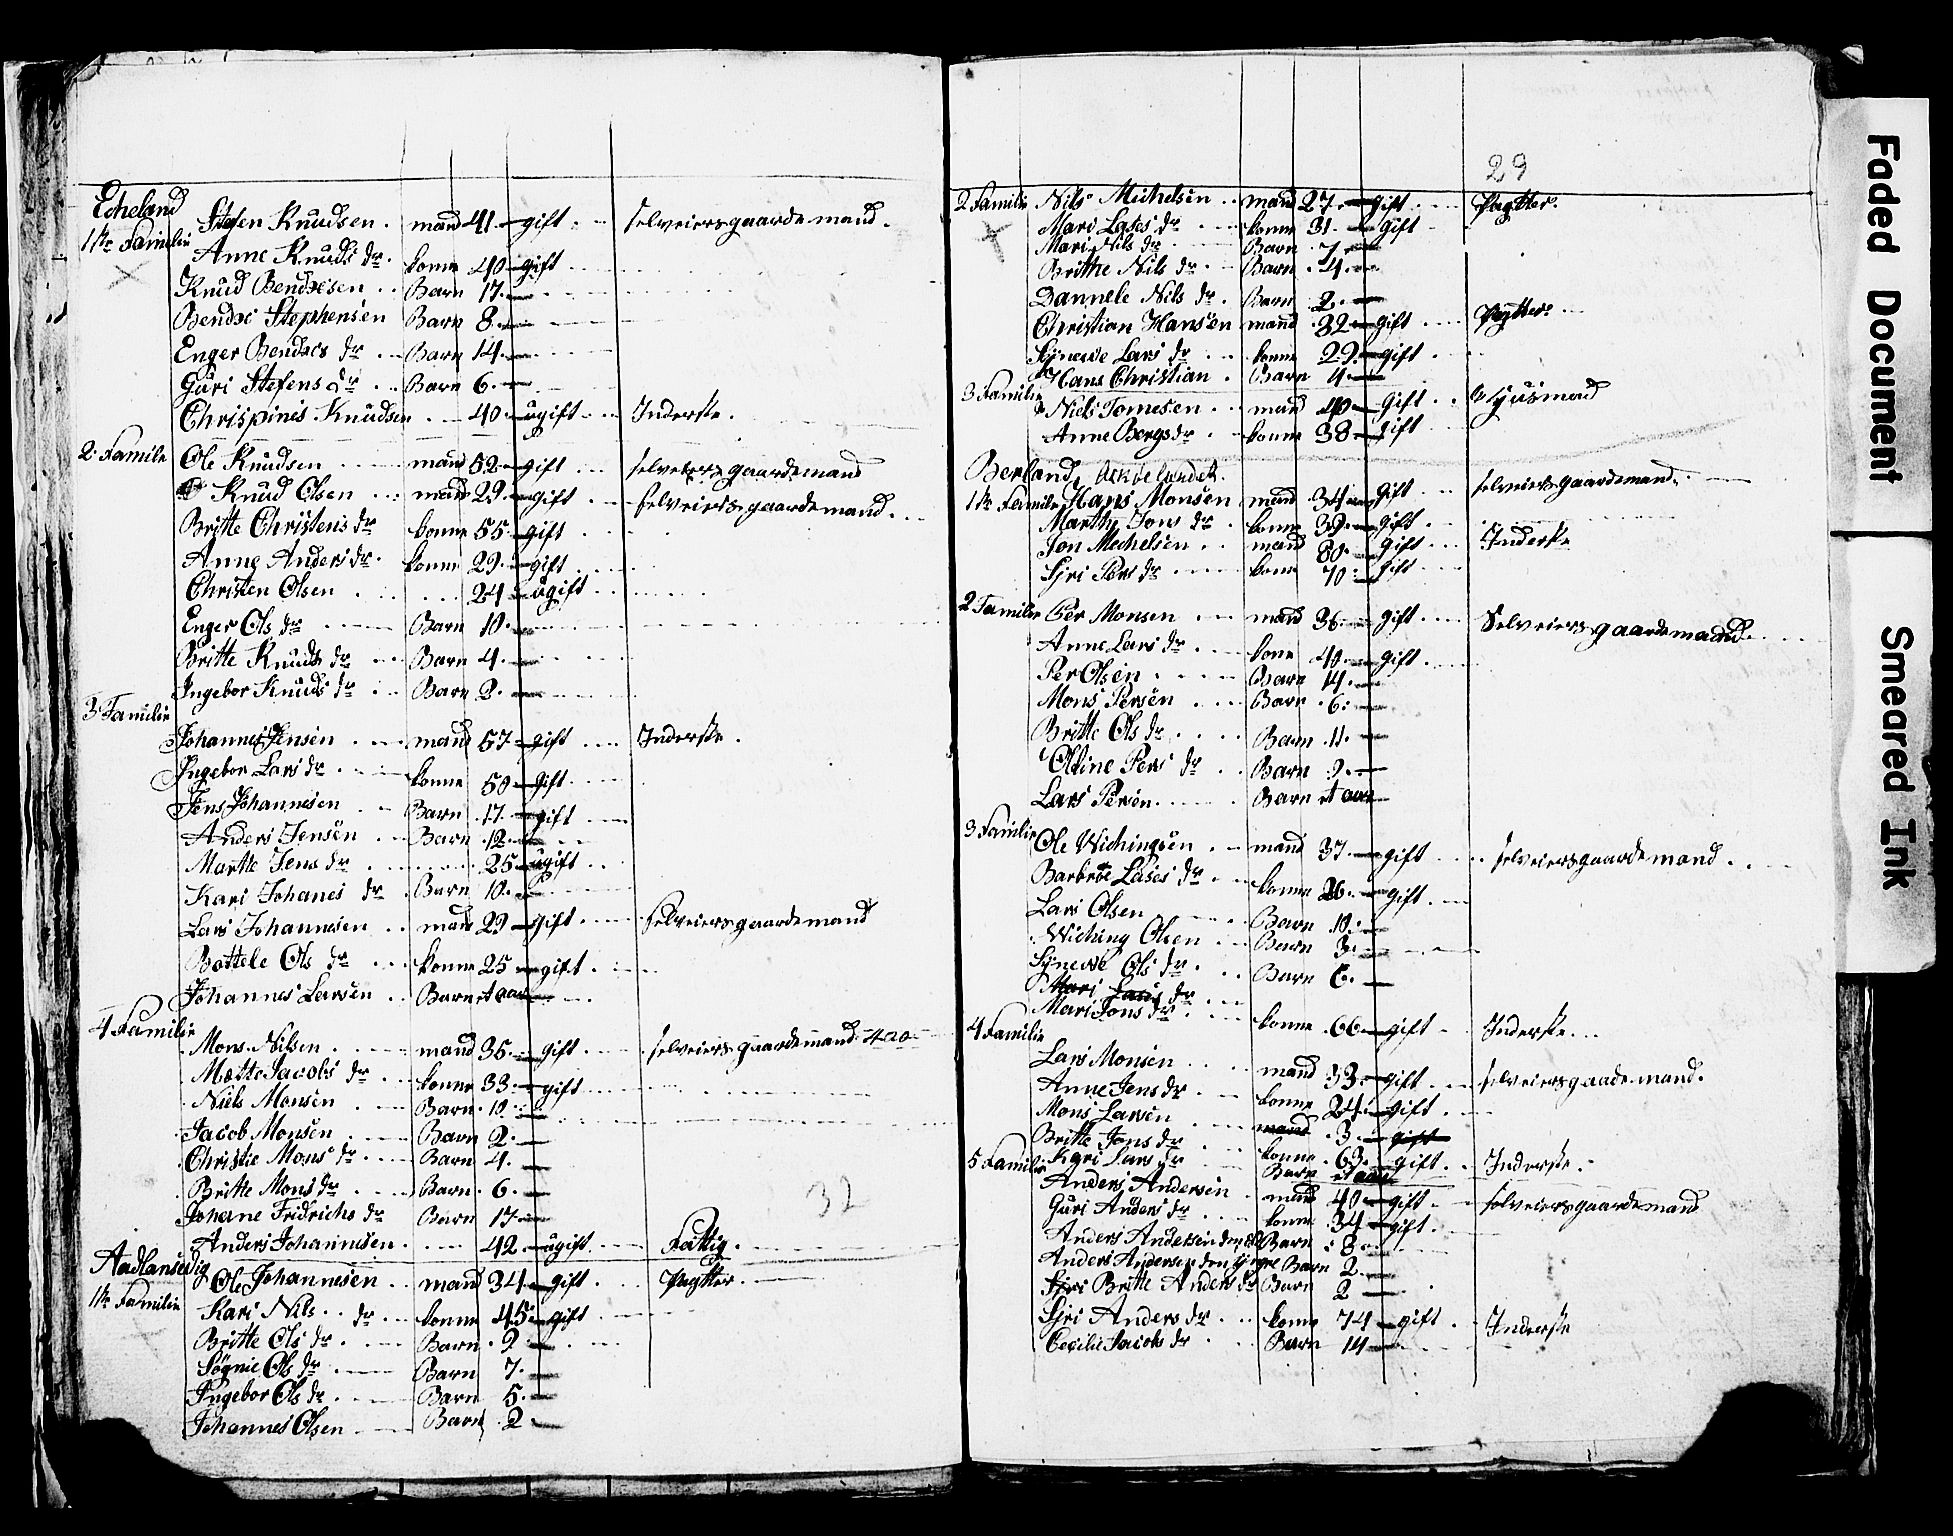 Echeland
Stefen Knudsen . mand 41 gift selveiersgaardemand.
1ste Familie
Anne Knuds dr. konne 40 gift
Knud Bendxsen Barn 17
Bendxc Stephensen Barn 8
Enger Bendxcs dr Barn 14
Guri Stefens dr Barn 6
Chrispinis Knudsen 40 ugift Inderste.
2 Familie Ole Knudsen mand 52 gift selveiersgaardemand
Knud Olsen mand 29 gift selveiersgaardemand
Britte Christens dr konne 55 gift
Anne Anders dr konne 29 gift
Christen Olsen 24 ugift
Enger Ols dr Barn 10
Britte Knuds dr Barn 4
Ingebor Knuds dr Barn 2
3 Familie
Johannes Jensen mand 57 gift Inderste.
Ingebor Lars dr konne 50 gift
Jens Johannesen Barn 17 gift
Anders Jensen Barn 12
Marthe Jens dr 25 ugift
Kari Johanes dr Barn 10
Lars Johannesen mand 29 gift selveiersgaardemand
Bottele Ols dr konne 25 gift
Johannes Larsen Barn et aar
4 Familie
Mons Nilsen mand 35 gift selveiersgaardemand
Mætte Jacobs dr konne 33 gift
Niels Monsen Barn 10
Jacob Monsen Barn 2
Christie Mons dr Barn 4
Britte Mons dr Barn 6
Joherne Fridrichs dr Barn 17
32
Anders Johannesen 42 ugift Fattig.
Aadlansvig
Ole Johannesen mand 34 gift Pagtter.
1ste Familie
Kari Nils dr konne 45 gift
Britte Ols dr Barn 2
Søgnie Ols dr Barn 7
Ingebor Ols dr Barn 5
Johannes Olsen Barn 2
29
2 Familie Nils Michelsen mand 27 gift Pagtter.
Mari Lases dr konne 31 gift
Mari Nils dr Barn 7
Brithe Nils dr Barn 4
Dannele Nils dr Barn 2
Christian Hansen mand 32 gift Pagtter
Synewe Lars dr konne 29 gift
Hans Christian Barn 4
3 Familie
Niels Tomesen mand 40 gift Husmand
Anne Bergs dr konne 38 gift
Berland,
1ste Familie Hans Monsen mand 34 gift selveiersgaardemand.
Marthy Jons dr konne 39 gift
Jon Mechelsen mand 80 gift Inderste
Sjri Pers dr konne 70 gift
2 Familie Per Monsen mand 36 gift Selveiersgaardemand.
Anne Lars dr kone 40 gift
Per Olsen Barn 14
Mons Persen Barn 6
Britte Ols dr Barn 11
Oline Pers dr Barn 9
Lars Persen Barn et aar
3 Familie
Ole Wichingsen mand 37 gift selveiersgaardemand
Barbroe Lases dr konne 26 gift
Lars Olsen Barn 10
Wiching Olsen Barn 3
Synewe Ols dr Barn 6
Mari Lases dr
Mari Jons dr konne 66 gift Inderste
4 Familie
Lars Monsen mand 33 gift selveiersgaardemand.
Anne Jens dr konne 24 gift
Mons Larsen mand 3 gift
Britte Jons dr konne 63 gift Inderste.
5 Familie
Kari Lars dr Barn et aar
Anders Andersen mand 40 gift selveiersgaardemand
Guri Anders dr konne 34 gift
Anders Andersen Barn 8
Anders Andersen den yngre Barn 2
Sjri Britte Anders dr Barn 2
Sjri Anders dr konne 74 gift Inderste
Cecilie Jacobs dr Barn 14
Faded Document
Smeared Ink